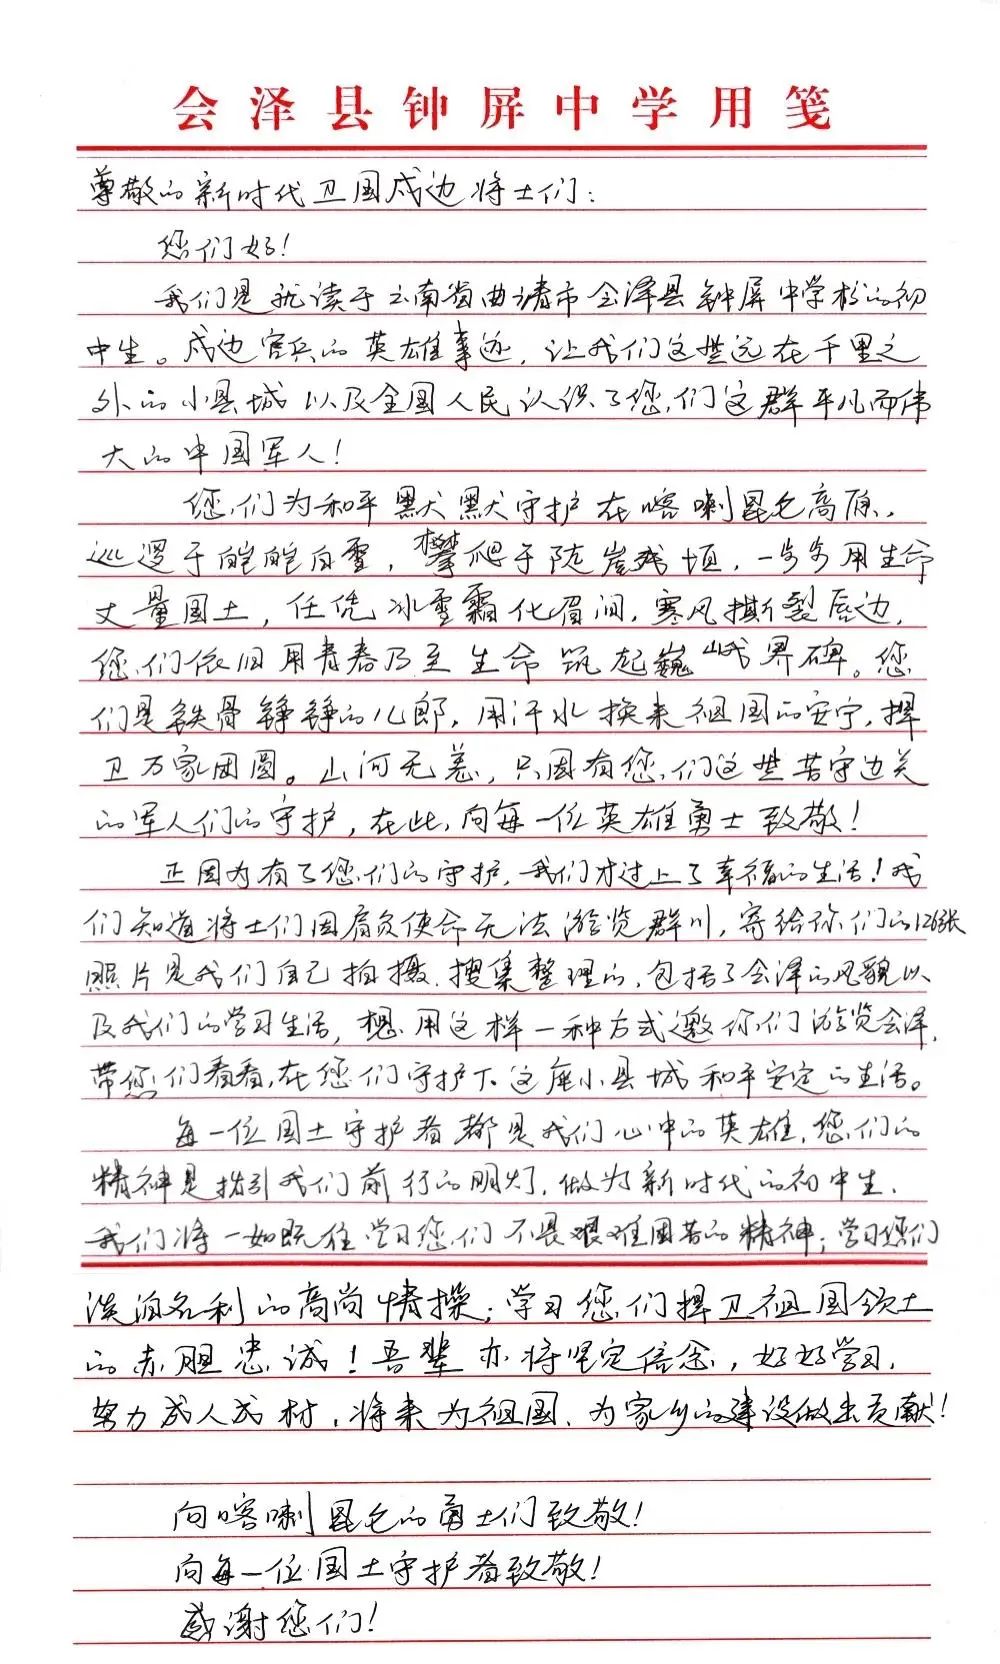 会泽县钟屏中学用笺
尊敬的新时代卫国戍边将士们：
您们好！
我们是就读于云南省曲靖市会泽县钟屏中学校的初
中生。戍边官兵的英雄事迹，让我们这些远在千里之
外的小县城以及全国人民认识了您们这群平凡而伟
大的中国军人！
您们为和平默默守护在喀喇昆仑高原，
巡逻于皑皑白雪，攀爬于陡崖残垣，一步步用生命
丈量国土，任凭冰雪霜化眉间，寒风撕裂唇边，
您们依旧用青春乃至生命筑起巍峨界碑。您
们是铁骨铮铮的儿郎，用汗水换来祖国的安宁，捍
卫万家团圆。山河无恙，只因有您们这些苦守边关
的军人们的守护，在此，向每一位英雄勇士致敬！
正因为有了您们的守护，我们才过上了幸福的生活！我
们知道将士们因肩负使命无法游览群川，寄给你们的126张
照片是我们自己拍摄、搜集整理的，包括了会泽的风貌以
及我们的学习生活，想用这样一种方式邀你们游览会泽，
带您们看看，在您们守护下这座小县城和平安定的生活。
每一位国土守护者都是我们心中的英雄，您们的
精神是指引我们前行的明灯，做为新时代的初中生，
我们将一如既往学习您们不畏艰难困苦的精神；学习您们
淡泊名利的高尚情操；学习您们捍卫祖国领土
的赤胆忠诚！吾辈亦将坚定信念，好好学习，
努力成人成材，将来为祖国、为家乡的建设做出贡献！
向喀喇昆仑的勇士们致敬！
向每一位国土守护者致敬！
感谢您们！